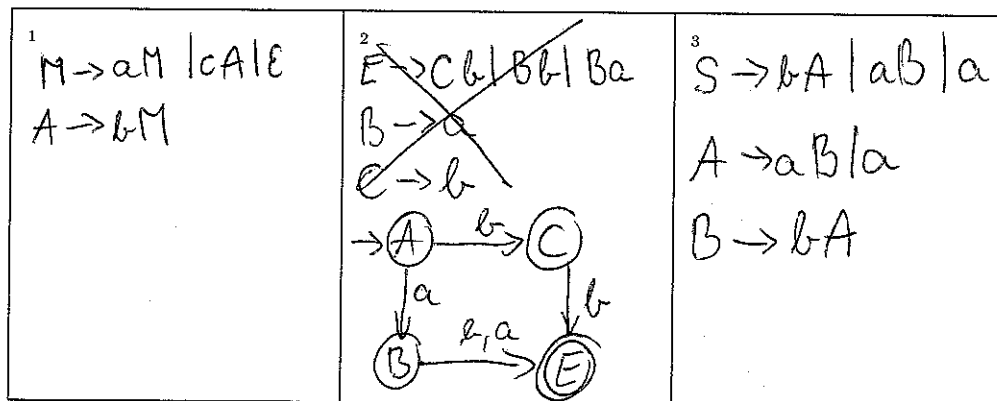 1
M → aM | cA | ε
A → bM
2
E → Cb | Bb | Ba
B → a
C → b
→ A b C
a b
B b,a E
3
S → bA | aB | a
A → aB | a
B → bA